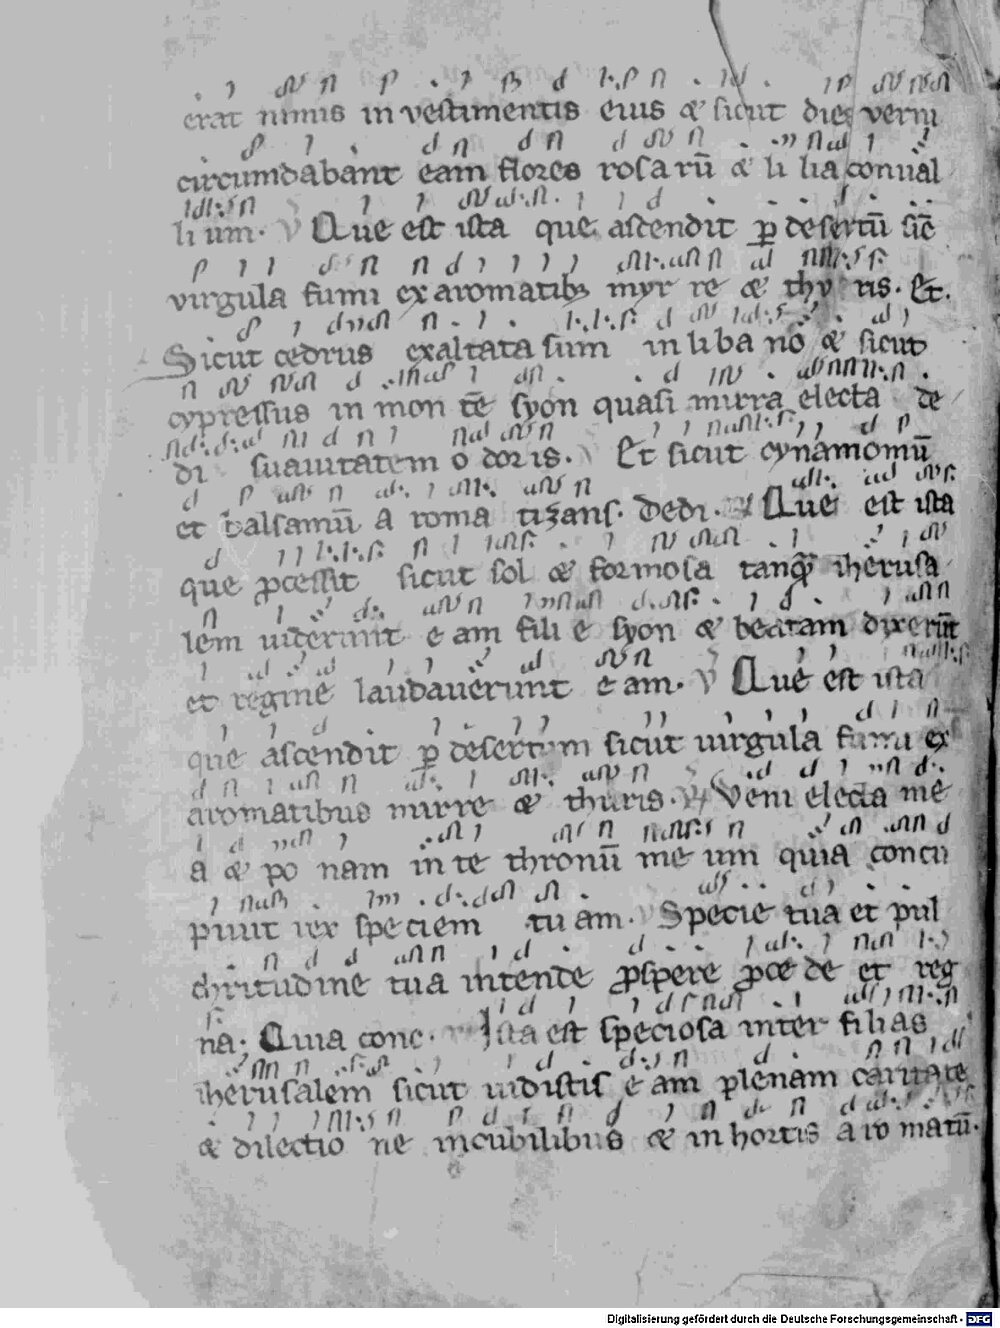 erat nimis in vestimentis eius & sicut dies verni
circumdabant eam flores rosa rū & li lia conual
li um. V Que est ista que ascendit ꝑ desertū sic̄
virgula fumi ex aromatibꝫ myr re & thy ris. Et.
Sicut cedrus exaltata sum in liba nō & sicut
cypressus in mon tē syon quasi mirra electa de
di suauitatem o doris. V Et sicut cynamomū
et balsamū a roma tizans. Dedi. Que est ista
que ꝓcessit sicut sol & formosa tanqȝ iherusa
lem uiderunt e am fili e syon & beatam dixerūt
et regine laudauerunt e am. V Que est ista
que ascendit ꝑ desertum sicut uirgula fumi ex
aromatibus mirre & thuris. R Veni electa me
a & po nam in te thronū me um quia concu
piuit rex speciem tu am. V Specie tua et pul
chritudine tua intende ꝓspere ꝓce de et reg
na. Quia conc. Ista est speciosa inter filias
iherusalem sicut uidistis e am plenam caritate
& dilectio ne in cubilibus & in hortis a ro matū.
Digitalisierung gefördert durch die Deutsche Forschungsgemeinschaft - DFG